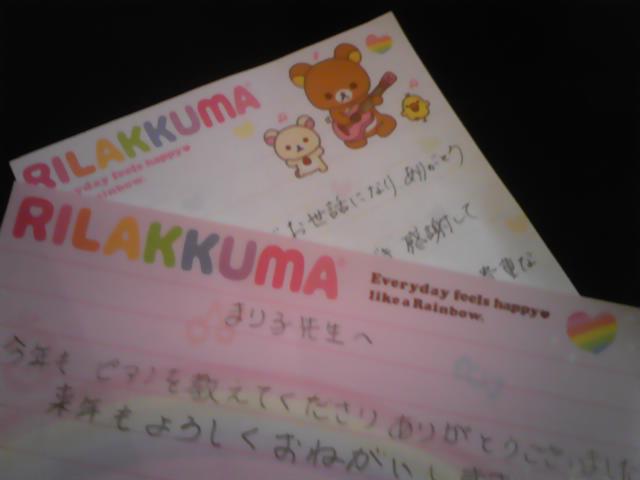 RILAKKUMA
yday feels happy
inbow.
お世話になり ありがとう
感謝して
RILAKKUMA
Everyday feels happy♥
like a Rainbow.
まり子先生へ
今年も ピアノを教えてくださり ありがとうございました
来年もよろしくおねがいします